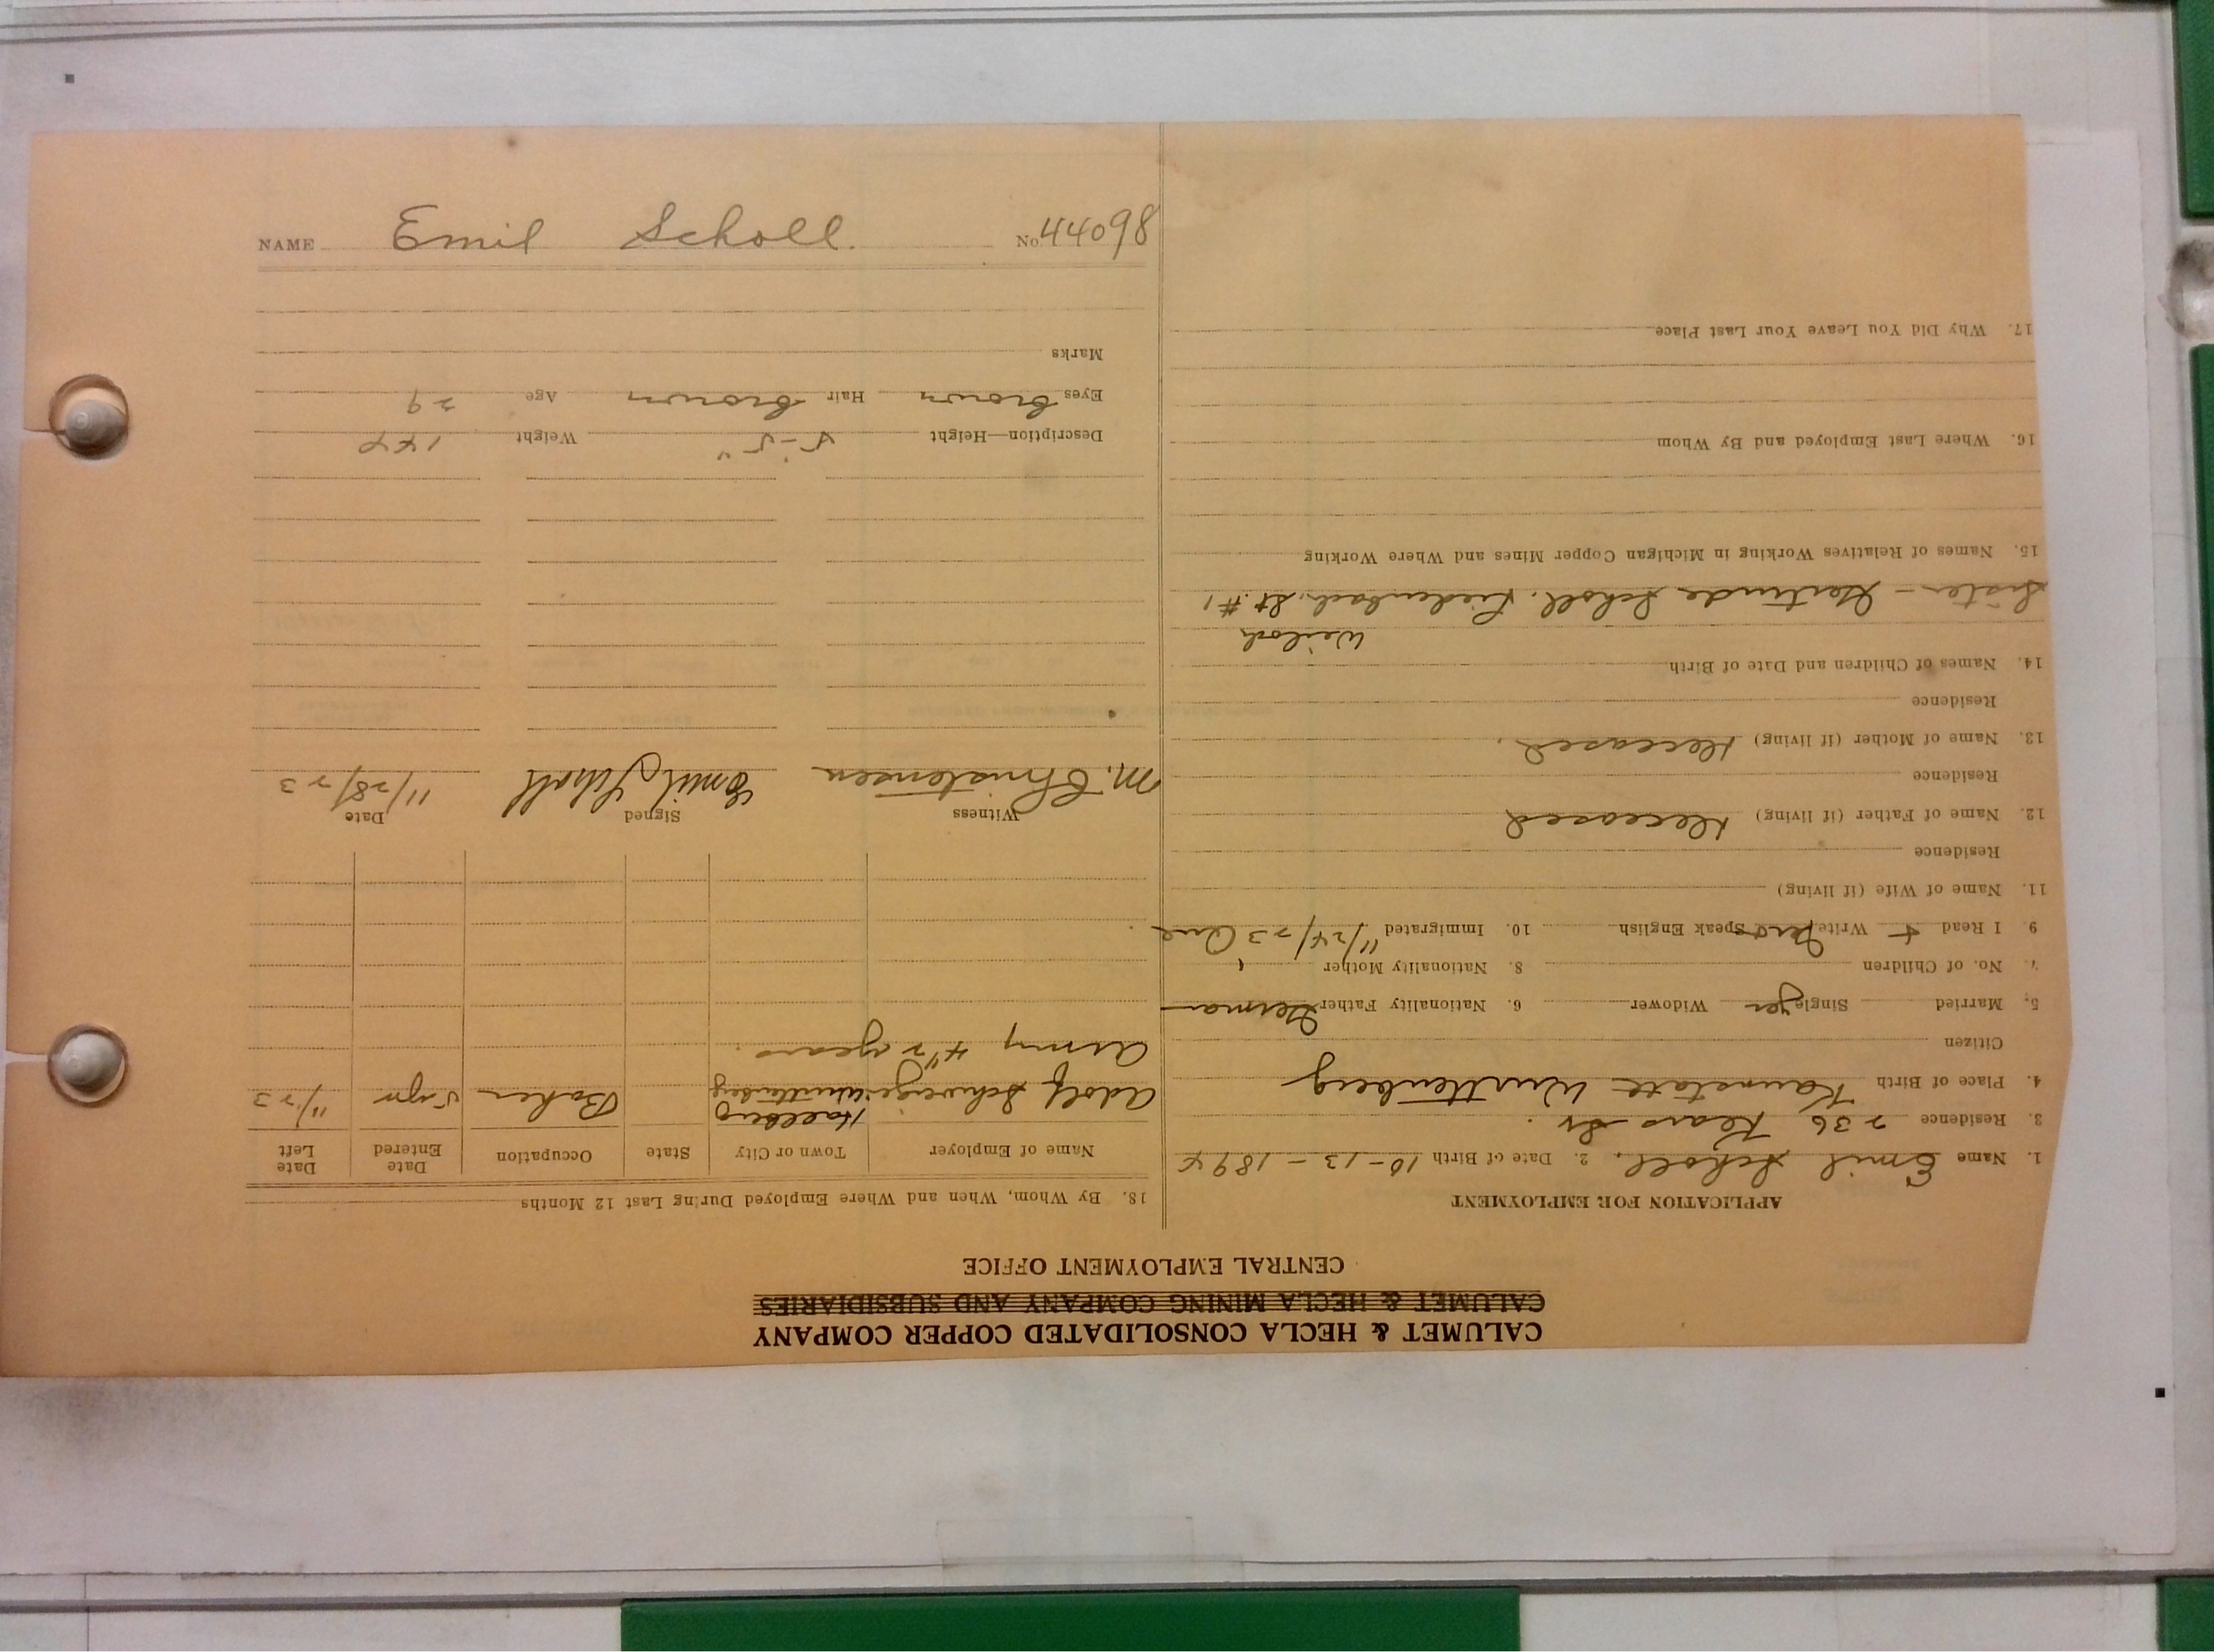 CALUMET & HECLA CONSOLIDATED COPPER COMPANY
CALUMET & HECLA MINING COMPANY AND SUBSIDIARIES
CENTRAL EMPLOYMENT OFFICE
APPLICATION FOR EMPLOYMENT
1. Name Emil Scholl. 2. Date of Birth 10-13-1894
3. Residence 236 Kearsar St.
4. Place of Birth Kannstatt Wurttenberg
Citizen
5. Married Single yes Widower 6. Nationality Father German
7. No. of Children 8. Nationality Mother "
9. I Read + Write Speak English 10. Immigrated 11/24/23
11. Name of Wife (if living)
Residence
12. Name of Father (if living) Deceased
Residence
13. Name of Mother (if living) Deceased.
Residence
14. Names of Children and Date of Birth
Sister - Gertrude Scholl. St. #1
15. Names of Relatives Working in Michigan Copper Mines and Where Working
16. Where Last Employed and By Whom
17. Why Did You Leave Your Last Place
18. By Whom, When and Where Employed During Last 12 Months
Name of Employer Town or City State Occupation Date Entered Date Left
Adolf Baker 5 yr 11/23
Army 4 1/2 years.
Witness Signed Date
M. Christensen Emil Scholl 11/28/23
Description—Height 5'-5" Weight 144
Eyes brown Hair brown Age 29
Marks
NAME Emil Scholl. No. 44098